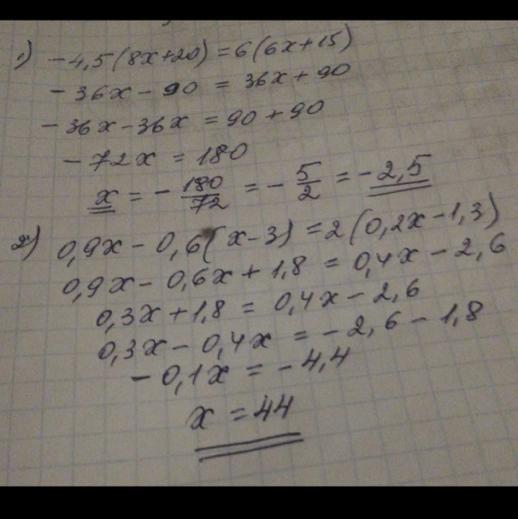 1) -4,5(8x+20)=6(6x+15)
-36x-90 = 36x+90
-36x-36x = 90+90
-72x = 180
x = -180/72 = -5/2 = -2,5
2) 0,9x - 0,6(x-3)=2(0,2x-1,3)
0,9x - 0,6x + 1,8 = 0,4x - 2,6
0,3x + 1,8 = 0,4x - 2,6
0,3x - 0,4x = -2,6 - 1,8
-0,1x = -4,4
x = 44